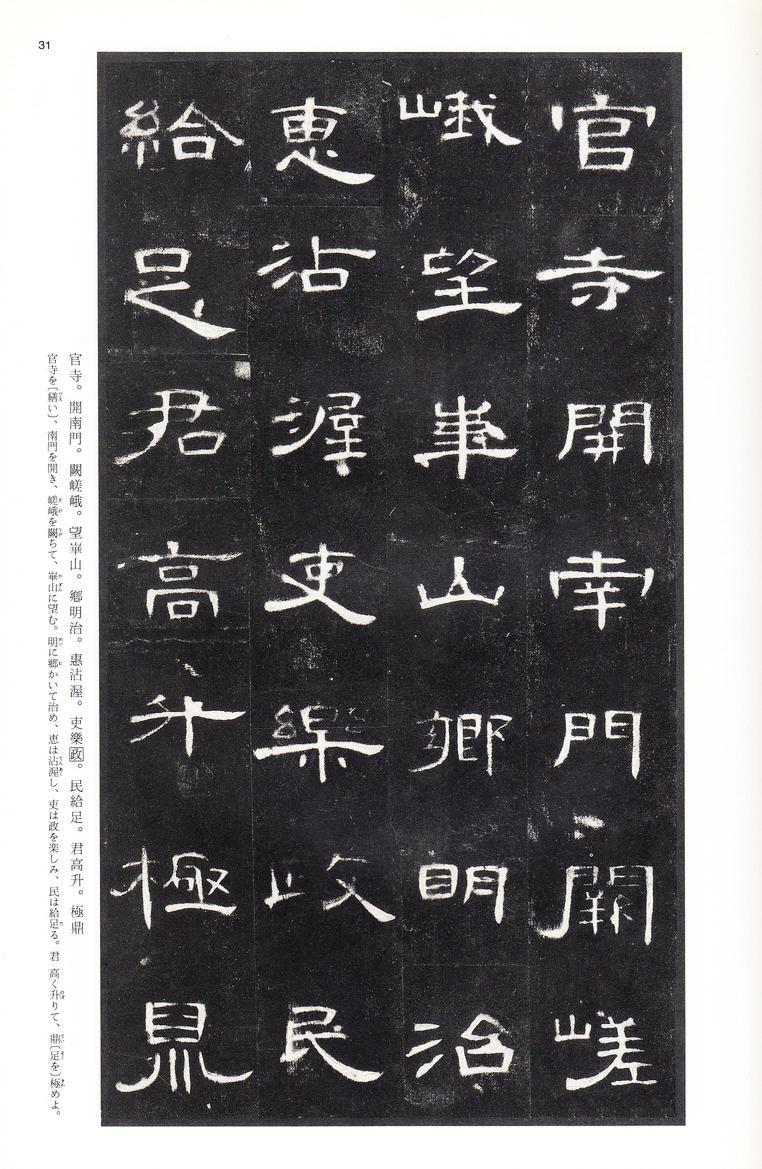 31
官寺開南門闕嵯
峨望崋山鄉明治
恵沾渥吏樂政民
給足君高升極鼎
官寺。開南門。闕嵯峨。望崋山。鄕明治。惠沾渥。吏樂政。民給足。君高升。極鼎
官寺を〔繕い〕、南門を開き、嵯峨を闕ちて、崋山に望む。明に郷かいて治め、恵は沾渥し、吏は政を楽しみ、民は給足る。君 高く升りて、鼎〔足を〕極めよ。